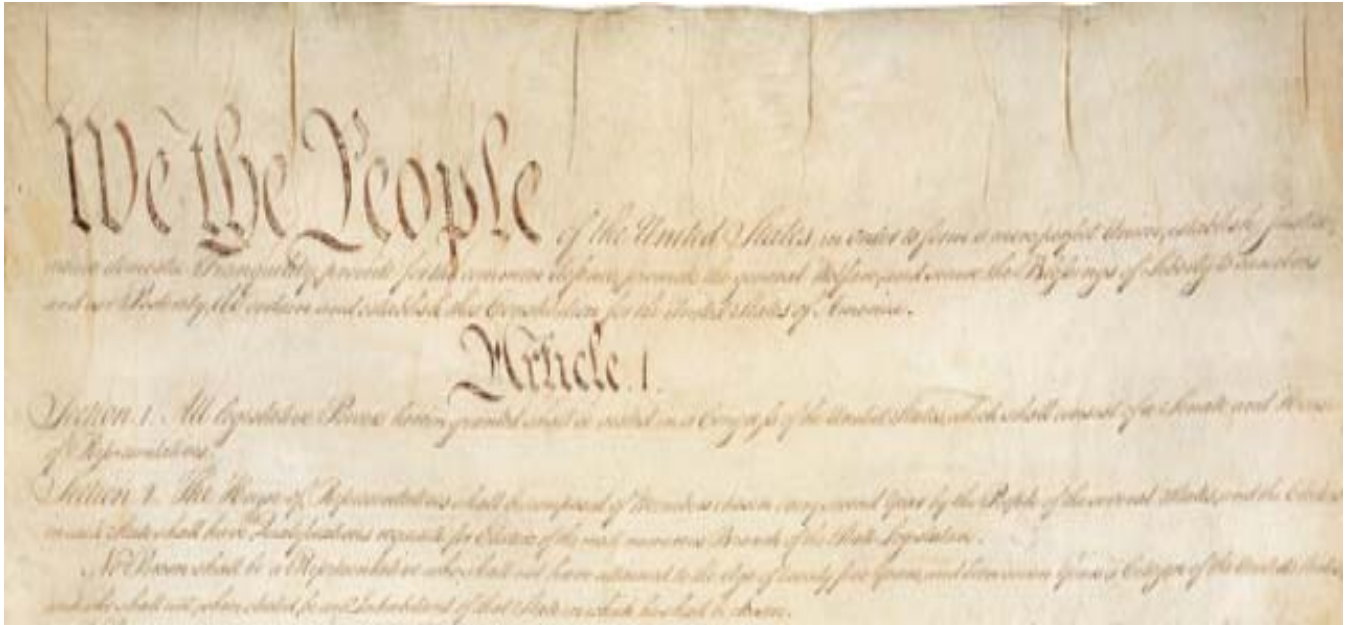 We the People of the United States, in Order to form a more perfect Union, establish Justice,
insure domestic Tranquility, provide for the common defence, promote the general Welfare, and secure the Blessings of Liberty to ourselves
and our Posterity, do ordain and establish this Constitution for the United States of America.
Article. I.
Section. 1. All legislative Powers herein granted shall be vested in a Congress of the United States, which shall consist of a Senate and House
of Representatives.
Section. 2. The House of Representatives shall be composed of Members chosen every second Year by the People of the several States, and the Electors
in each State shall have the Qualifications requisite for Electors of the most numerous Branch of the State Legislature.
No Person shall be a Representative who shall not have attained to the Age of twenty five Years, and been seven Years a Citizen of the United States,
and who shall not, when elected, be an Inhabitant of that State in which he shall be chosen.